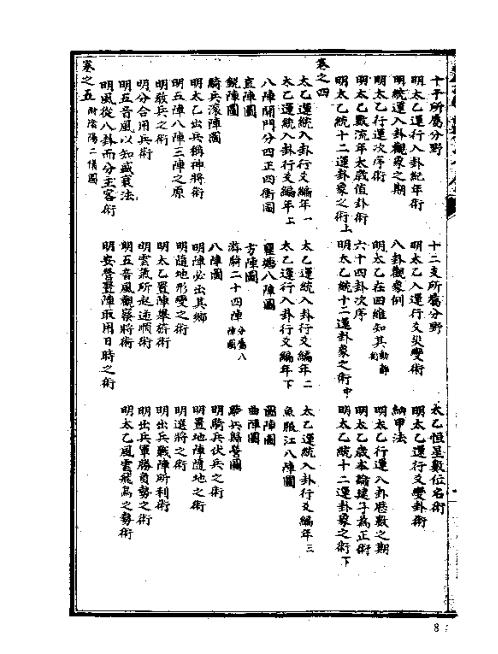 十干所屬分野　十二支所屬分野　太乙恒星數位名術
明太乙運行入卦紀年術　明太乙入運行爻災變術　明太乙運行爻變卦術
明統運入卦觀象之期　八卦觀象例　納甲法
明太乙行運次序術　明太乙在四維知其動靜術　明太乙行運入卦曆數之期
明太乙數流年太歲值卦術　六十四卦次序　明太乙歲本諭建子為正術
明太乙統十二運卦象之術上　明太乙統十二運卦象之術中　明太乙統十二運卦象之術下
卷之四
太乙運統入卦行爻編年一　太乙運統入卦行爻編年二　太乙運統入卦行爻編年三
太乙運統入卦行爻編年上　太乙運行入卦行爻編年下　魚腹江八陣圖
八陣開門分四正四衝圖　八陣圖
直陣圖　方陣圖　圓陣圖
銳陣圖　游騎二十四陣分屬八陣圖　曲陣圖
騎兵滾陣圖　八陣圖　騎兵歸營圖
明太乙出兵稱神將術　明陣必出其鄉　明騎兵伏兵之術
明五陣八陣三陣之原　明隨地形變之術　明置地陣隨地之術
明教兵之術　明太乙置陣舉旌術　明選將之術
明分合用兵術　明雲氣所起逆順術　明出兵戰陣所利術
明五音風以知盛衰法　明五音風觀察將術　明出兵軍勝負勢之術
明風從八卦而分主客術　明安營置陣取用日時之術　明太乙風雲飛鳥之勢術
卷之五附陰陽二儀圖
8